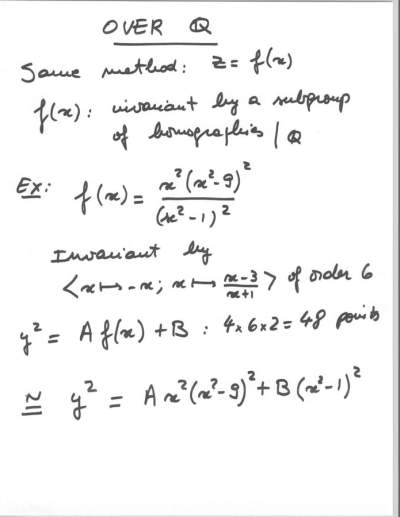 OVER ℚ
Same method: z = f(x)
f(x): invariant by a subgroup
of homographies / ℚ
Ex: f(x) = x²(x²-9)² / (x²-1)²
Invariant by
<x ↦ -x; x ↦ (x-3)/(x+1)> of order 6
y² = A f(x) + B : 4×6×2 = 48 points
≅ y² = A x²(x²-9)² + B (x²-1)²